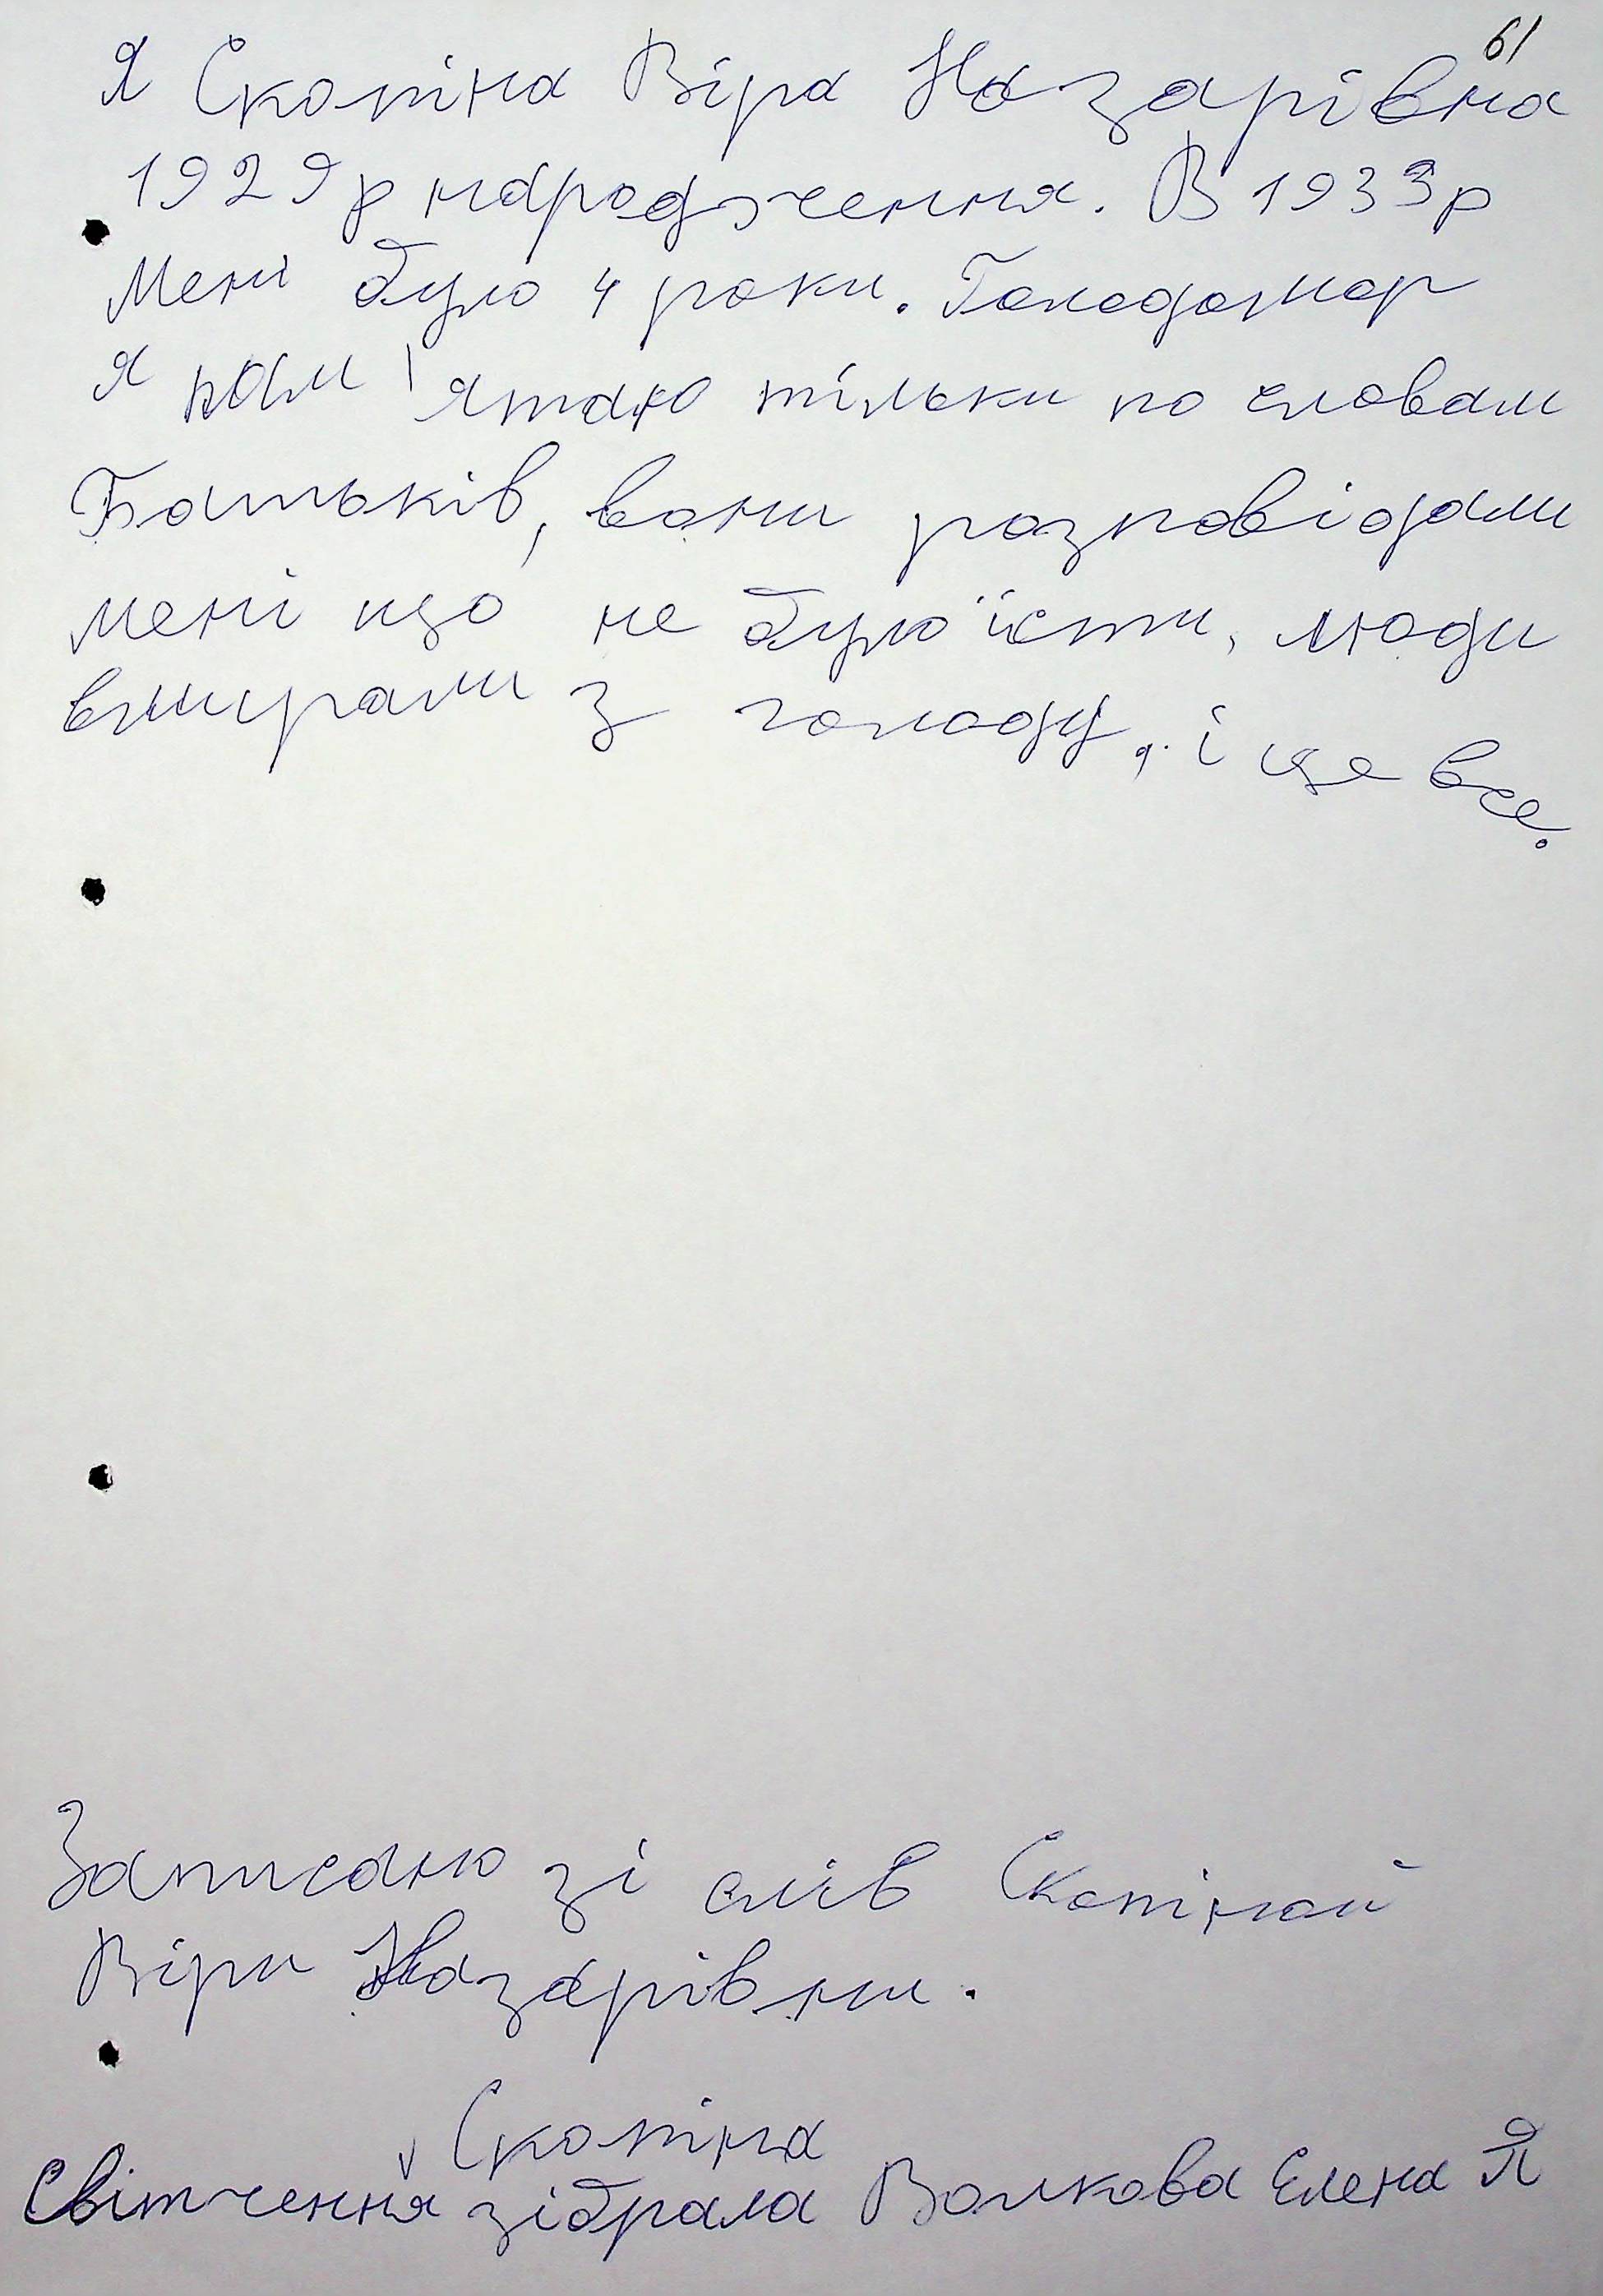 61
Я Скопіна Віра Назарівна
1929р народження. В 1933р
Мені було 4 роки. Голодомор
я пам'ятаю тільки по словам
Батьків, вони розповідали
мені що не було їсти, люди
вмирали з голоду, і це все.
Записано зі слів Скопіной
Віри Назарівни.
Скопіна
Світчення зібрала Волкова Елена Я